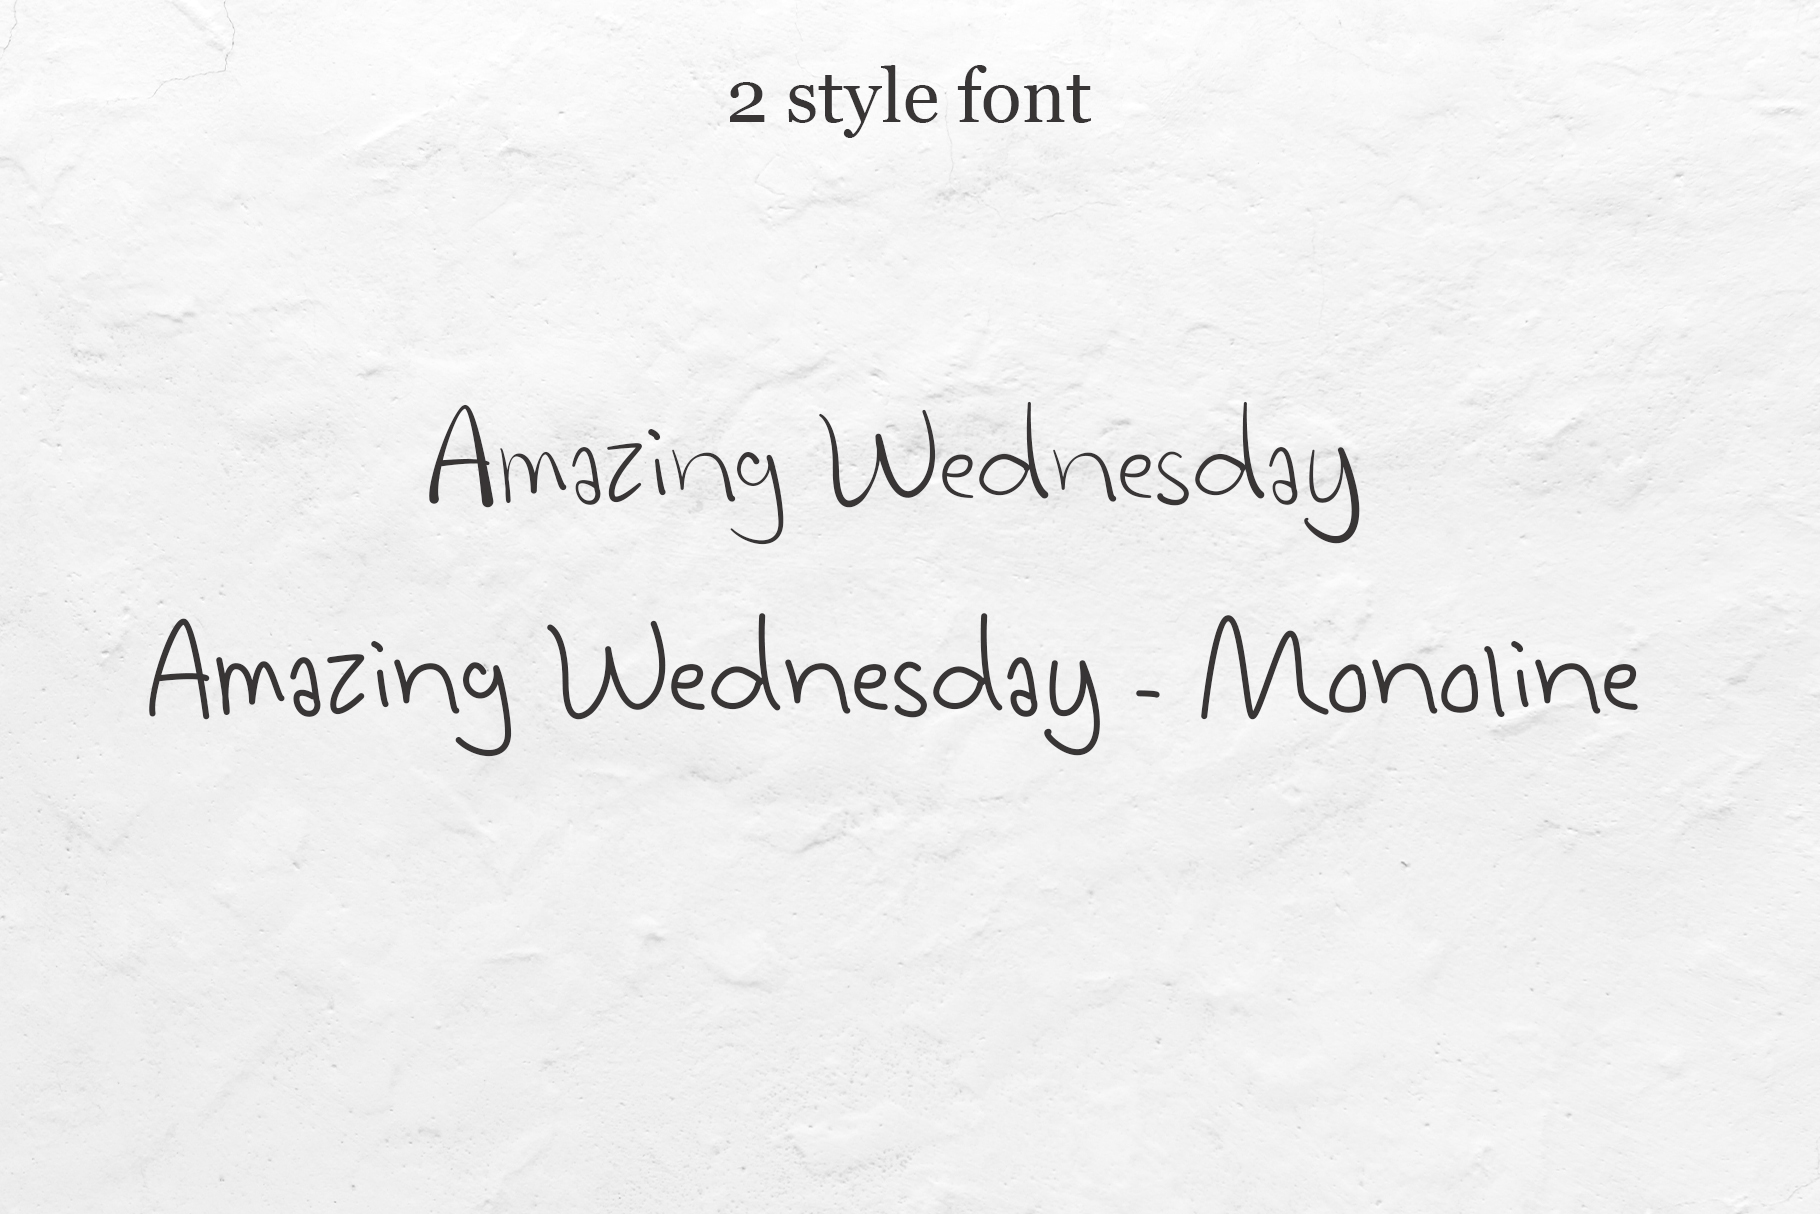 2 style font
Amazing Wednesday
Amazing Wednesday - Monoline